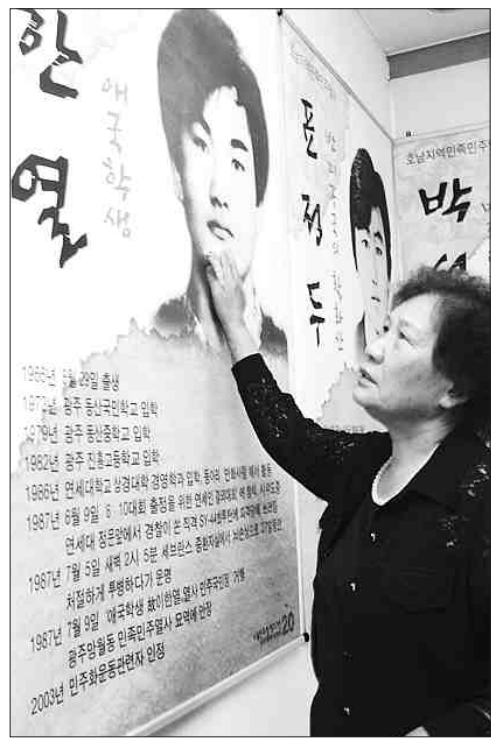 한열
애국학생
1966년 8월 29일 출생
1973년 광주 동산국민학교 입학
1979년 광주 동산중학교 입학
1982년 광주 진흥고등학교 입학
1986년 연세대학교 상경대학 경영학과 입학, 동아리 '만화사랑'에서 활동
1987년 6월 9일 '6·10대회 출정을 위한 연세인 결의대회'에 참석, 시위도중
연세대 정문앞에서 경찰이 쏜 직격 SY-44최루탄에 피격당해 쓰러짐
1987년 7월 5일 새벽 2시 5분 세브란스 중환자실에서 뇌손상으로 27일동안
처절하게 투병하다가 운명
1987년 7월 9일 '애국학생 故이한열 열사 민주국민장' 거행
광주망월동 민족민주열사 묘역에 안장
2003년 민주화운동관련자 인정
20
표정두
호남지역민족민주
박